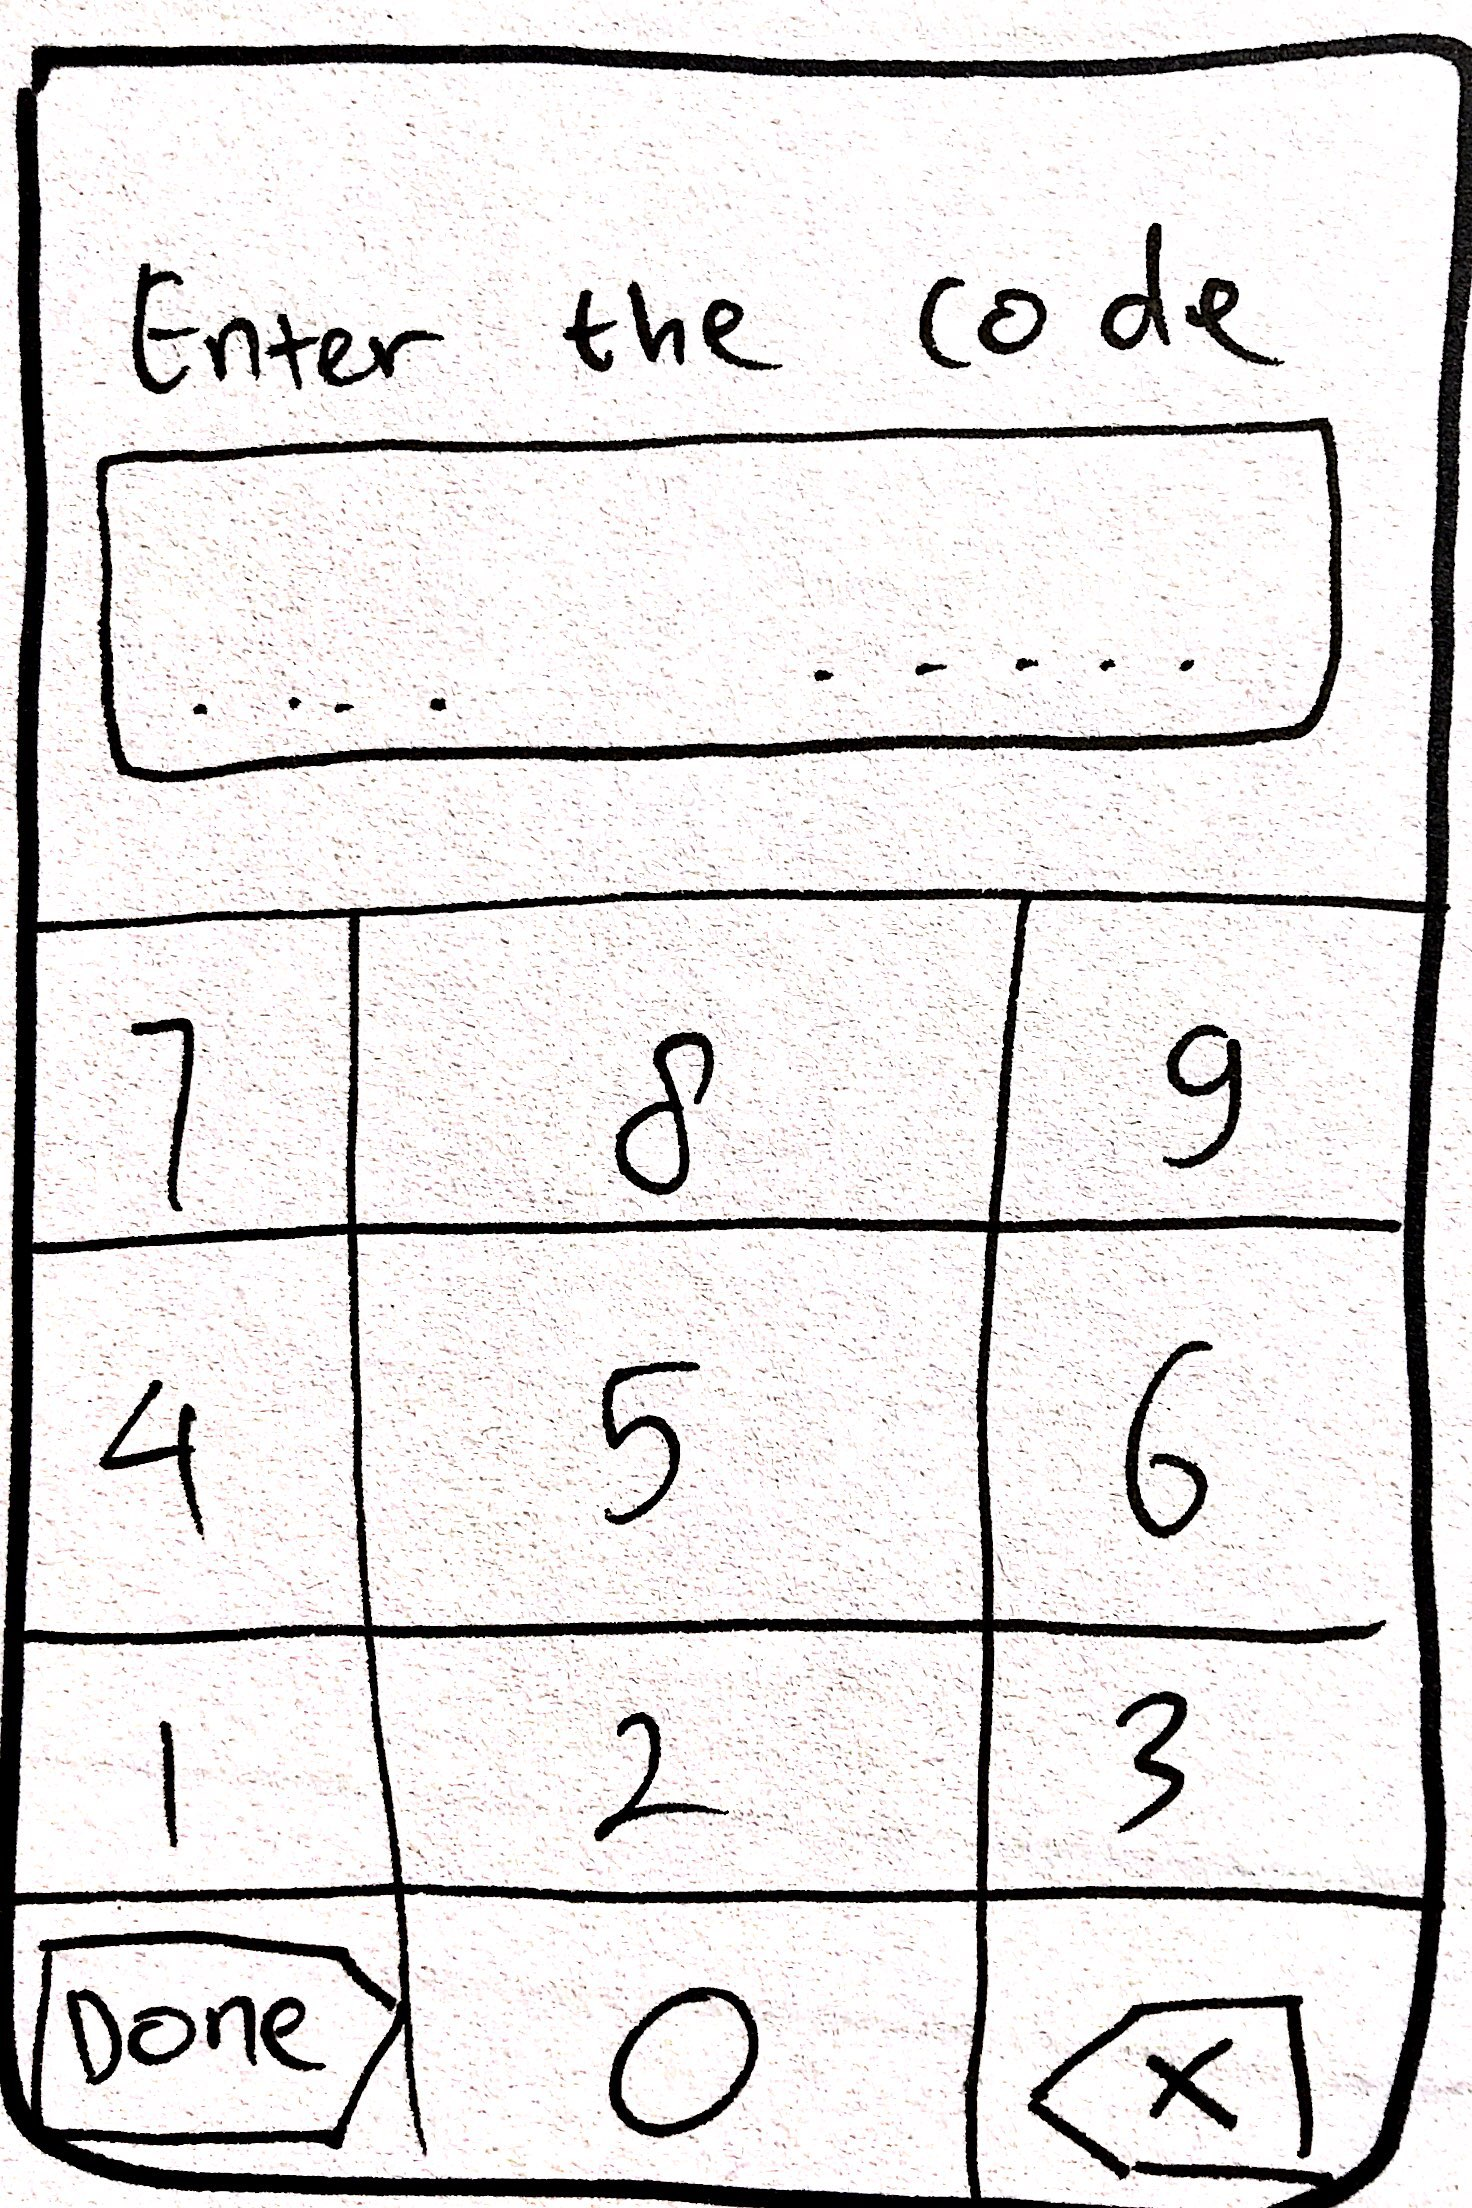 Enter the code
. . . . . - . . .
7 8 9
4 5 6
1 2 3
Done 0 X